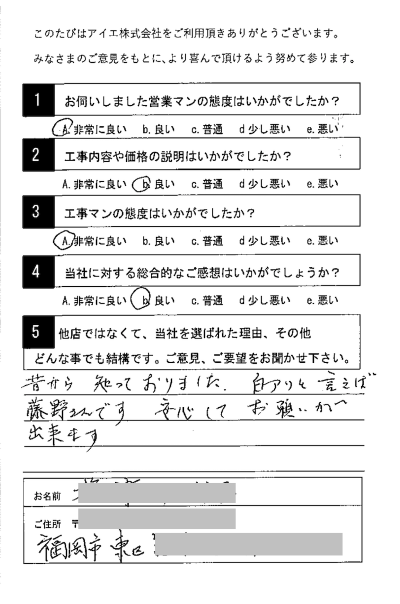 このたびはアイエ株式会社をご利用頂きありがとうございます。
みなさまのご意見をもとに、より喜んで頂けるよう努めて参ります。
1 お伺いしました営業マンの態度はいかがでしたか？
A. 非常に良い b. 良い c. 普通 d 少し悪い e. 悪い
2 工事内容や価格の説明はいかがでしたか？
A. 非常に良い b. 良い c. 普通 d 少し悪い e. 悪い
3 工事マンの態度はいかがでしたか？
A. 非常に良い b. 良い c. 普通 d 少し悪い e. 悪い
4 当社に対する総合的なご感想はいかがでしょうか？
A. 非常に良い b. 良い c. 普通 d 少し悪い e. 悪い
5 他店ではなくて、当社を選ばれた理由、その他
どんな事でも結構です。ご意見、ご要望をお聞かせ下さい。
昔から 知っておりました。白アリと言えば
藤野さんです 安心して お願いが
出来ます
お名前
ご住所 〒
福岡市 東区